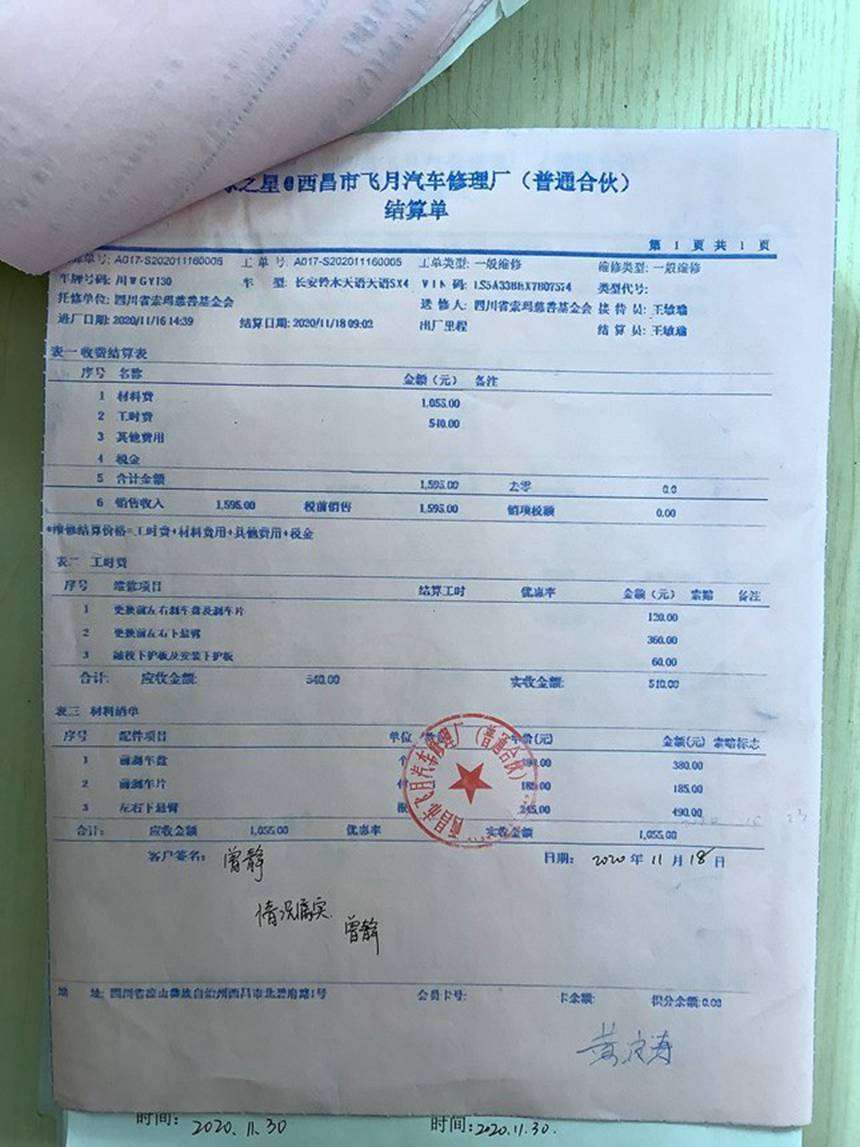 之星 西昌市飞月汽车修理厂（普通合伙）
结算单
第 1 页 共 1 页
算单号: A017-S202011160005 工 单 号: A017-S202011160005 工单类型: 一般维修 维修类型: 一般维修
车牌号码: 川WGY130 车 型: 长安铃木天语天语SX4 VIN 码: 类型代号:
托修单位: 四川省索玛慈善基金会 送 修 人: 四川省索玛慈善基金会 接 待 员: 王敏瑜
进厂日期: 2020/11/16 14:39 结算日期: 2020/11/18 09:02 出厂里程 结 算 员: 王敏瑜
表一 收费结算表
序号 名称 金额（元） 备注
1 材料费 1,055.00
2 工时费 540.00
3 其他费用
4 税金
5 合计金额 1,595.00 去零 0.0
6 销售收入 1,595.00 税前销售 1,595.00 销项税额 0.00
*维修结算价格=工时费+材料费用+其他费用+税金
表二 工时费
序号 维修项目 结算工时 优惠率 金额（元） 索赔 备注
1 更换前左右刹车盘及刹车片 120.00
2 更换前左右下悬臂 360.00
3 下护板及安装下护板 60.00
合计: 应收金额: 540.00 实收金额: 540.00
表三 材料清单
序号 配件项目 单位 数量 单价(元) 金额(元) 索赔标志
1 前刹车盘 个 380.00
2 前刹车片 185.00 185.00
3 左右下悬臂 245.00 490.00
合计: 应收金额 1,055.00 优惠率 实收金额 1,055.00
西昌市飞月汽车修理厂（普通合伙）
客户签名: 曾静 日期: 2020 年 11 月 18 日
情况属实.
曾静
地 址: 四川省凉山彝族自治州西昌市北碧府路1号 会员卡号: 卡余额: 积分余额:0.00
时间: 2020.11.30 时间: 2020.11.30.